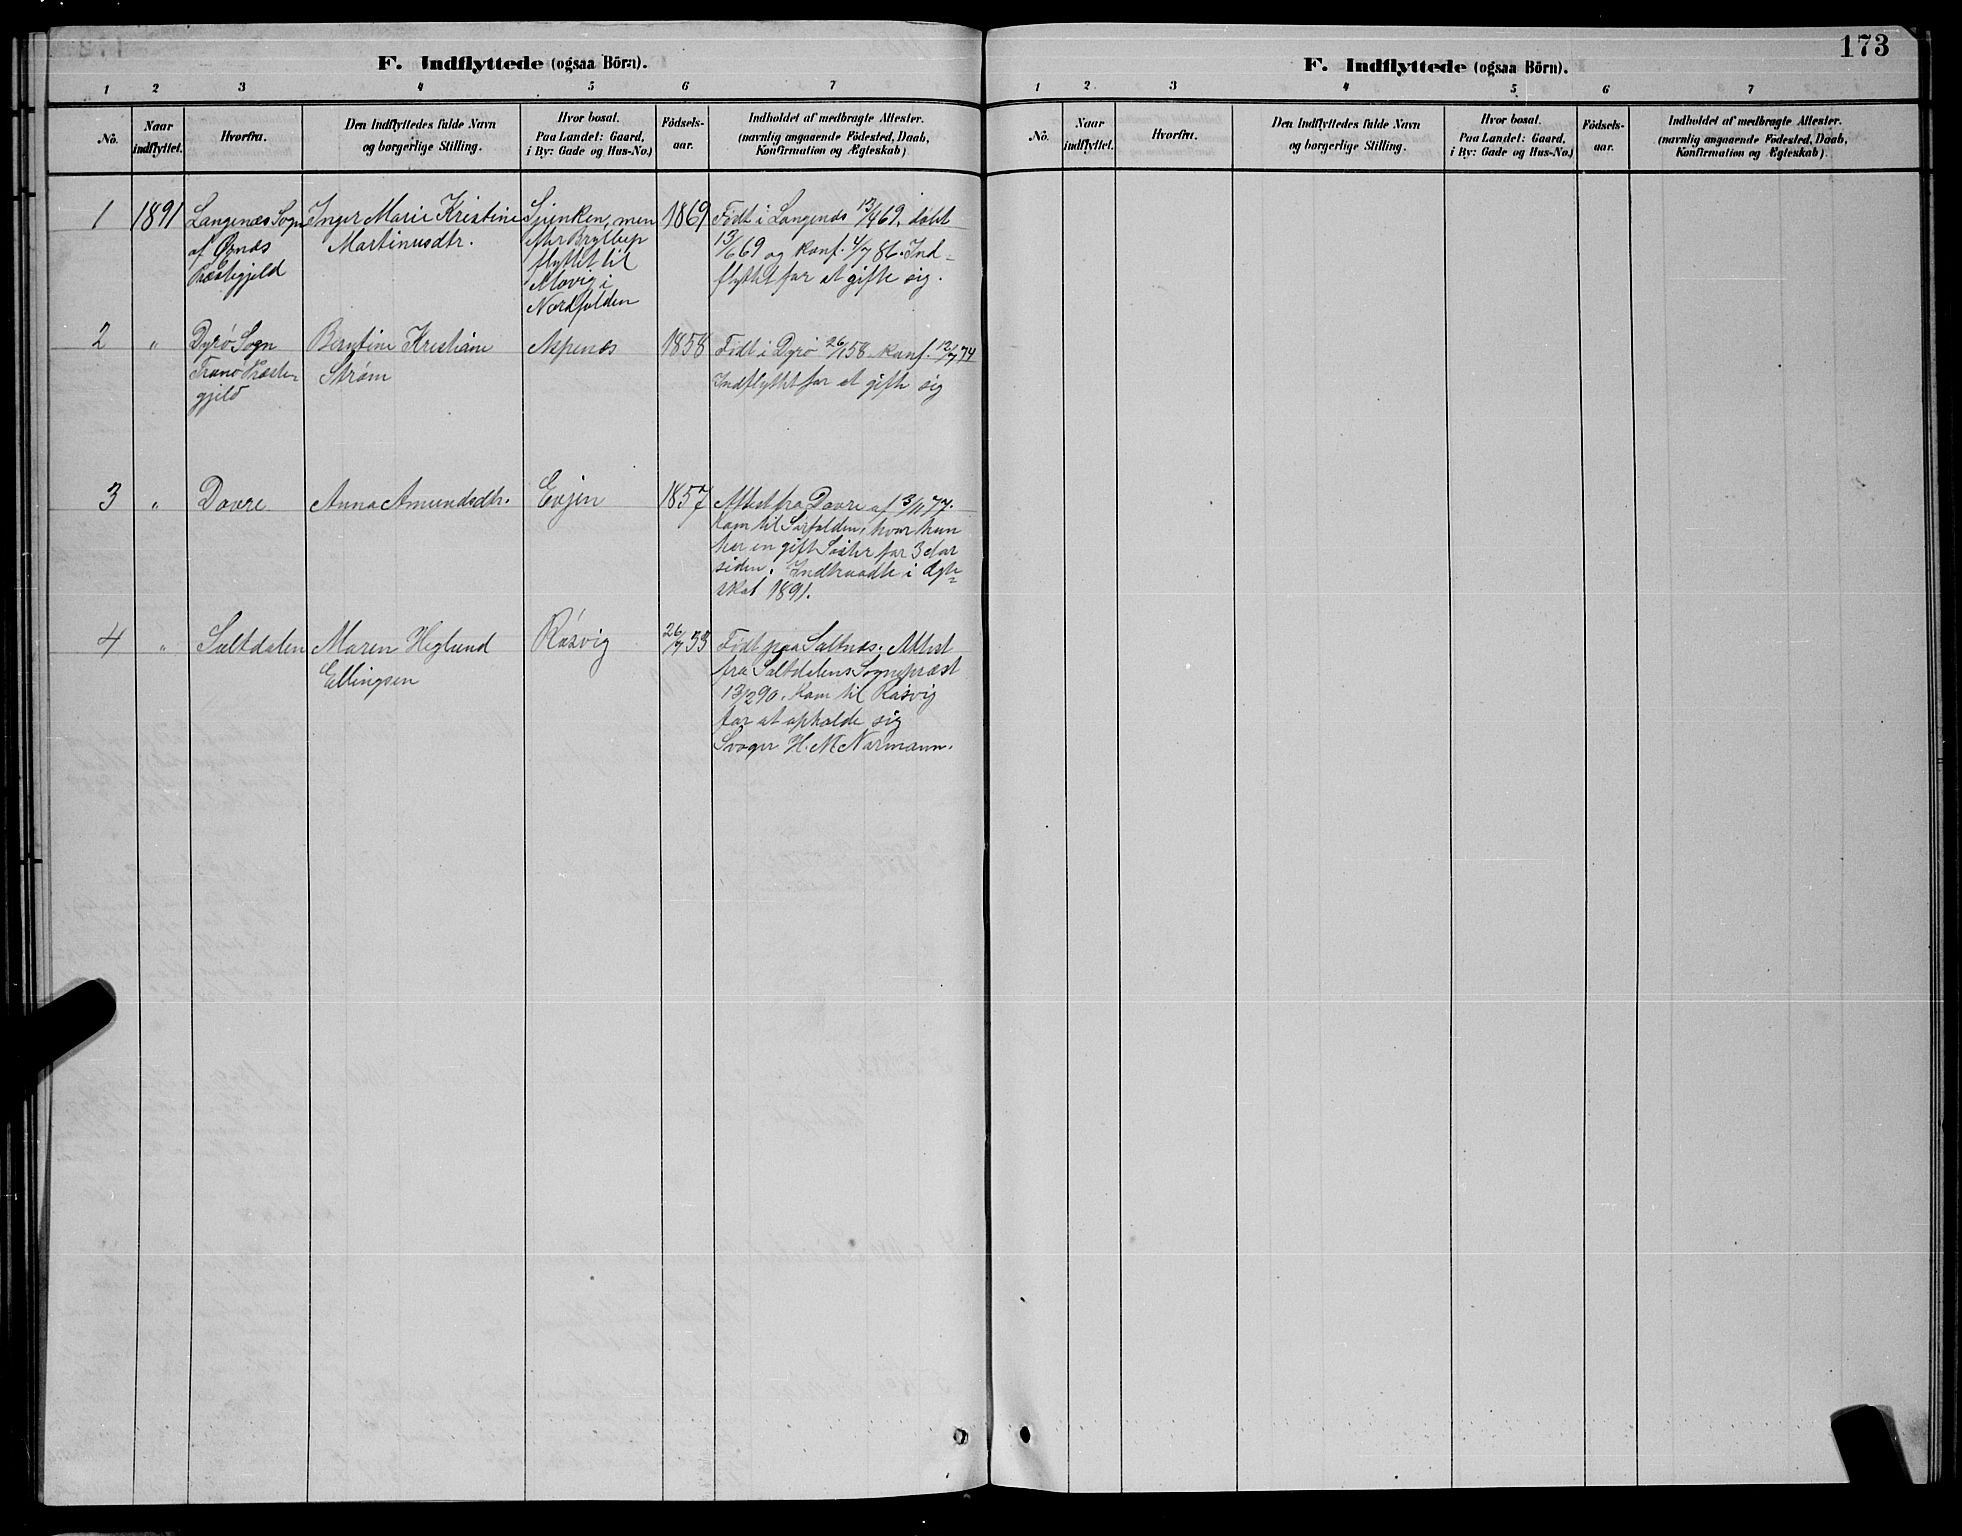 F. Indflyttede (ogsaa Börn).
1 2 3 4 5 6 7
No.
Naar
indflyttet.
Hvorfra.
Den Indflyttedes fulde Navn
og borgerlige Stilling.
Hvor bosat.
Paa Landet: Gaard,
i By: Gade og Hus-No.)
Födsels-
aar.
Indholdet af medbragte Attester.
(navnlig angaaende Födested, Daab,
Konfirmation og Ægteskab)
1
1891
Langenæs Sogn
af Øxnæs
Præstegjeld
Inger Marie Kristine
Martinusdtr.
men
efter Bryllup
flyttet til
i
Nordfolden
1869
Født i Langenæs 12/4 69, døbt
13/6 69 og konf. 4/7 86. Ind-
flyttet for at gifte sig.
2
"
Dyrø Sogn
Tranø Præste-
gjeld
Berntine Kristiane
Strøm
Aspenæs
1858
Født i Dyrø 26/1 58 konf. 12/7 74
Indflyttet for at gifte sig
3
"
Dovre
Anna Amundsdtr.
Evjen
1857
Attest fra Dovre af 13/11 77.
Kom til Sørfolden, hvor hun
har en gift Søster for 3 Aar
siden. Indtraadte i Ægte=
skab 1891.
4
"
Saltdalen
Maren Heglund
Ellingsen
Røsvig
26/7 33
Født paa Saltnæs. Attest
fra Saltdalens Sognepræst
13/2 90. Kom til Røsvig
for at opholde sig
Svoger H. M. Normann.
173
F. Indflyttede (ogsaa Börn).
1 2 3 4 5 6 7
No.
Naar
indflyttet.
Hvorfra.
Den Indflyttedes fulde Navn
og borgerlige Stilling.
Hvor bosat.
Paa Landet: Gaard,
i By: Gade og Hus-No.)
Födsels-
aar.
Indholdet af medbragte Attester.
(navnlig angaaende Födested, Daab,
Konfirmation og Ægteskab)